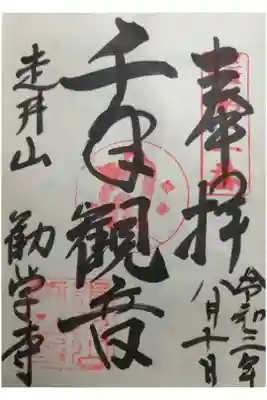 奉拝
令和二年
八月十日
千手観音
走井山
勧学寺